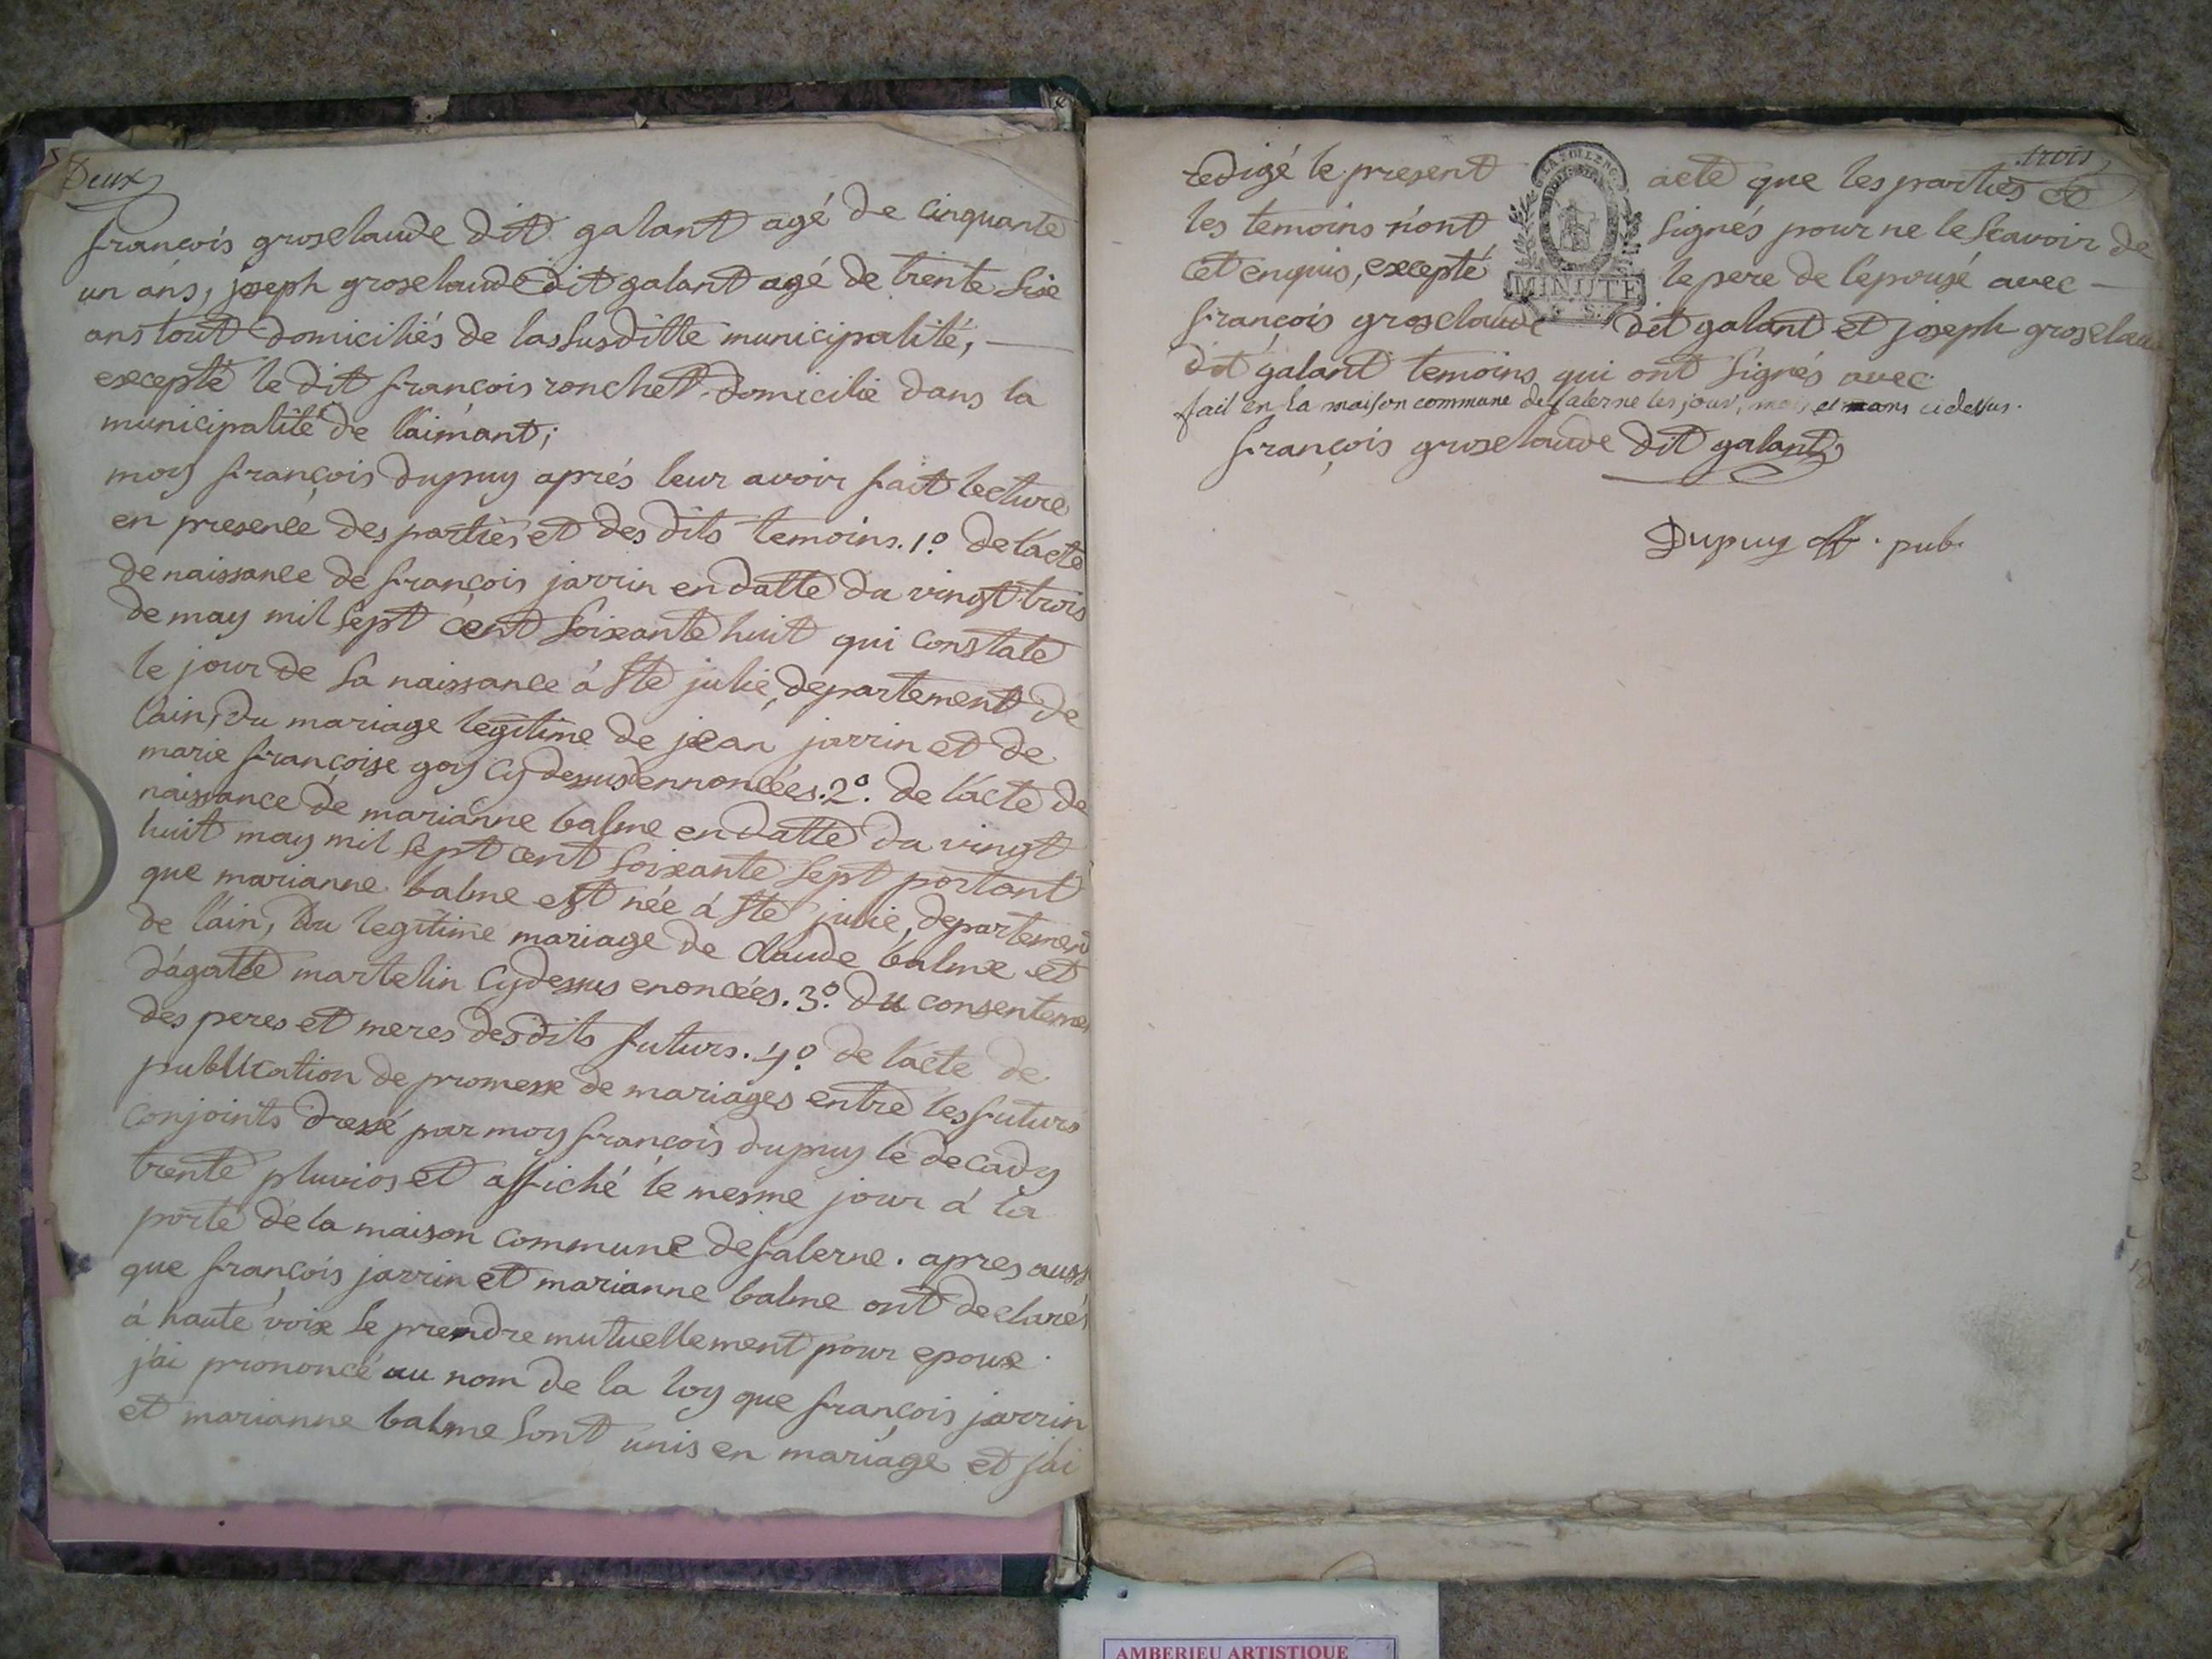 Deux
françois groselaude dit galant agé de cinquante
un ans, joseph groselaude dit galant agé de trente six
ans tout domiciliés de lassusditte municipalité,
excepté le dit françois ronchet domicilié dans la
municipalité de l'aimant;
moy françois dupuy aprés leur avoir fait lecture
en presence des parties et des dits temoins. 1º. de l'acte
de naissance de françois jarrin en datte du vingt trois
de may mil sept cent soixante huit qui constate
le jour de sa naissance á ste julie, departement de
lain, du mariage legitime de jean jarrin et de
marie françoise goy cydessus ennoncées. 2º. de l'acte de
naissance de marianne balme en datte du vingt
huit may mil sept cent soixante sept portant
que marianne balme est née á ste julie, departement
de l'ain, du legitime mariage de claude balme et
d'agatte martelin cydessus enoncées. 3º. du consenteme
des peres et meres desdits futurs. 4º. de l'acte de
publication de promesse de mariages entre les futurs
conjoints dressé par moy françois dupuy le decady
trente pluvios et affiché le mesme jour á la
porte de la maison commune de salerne. apres aussi
que françois jarrin et marianne balme ont declarés
á haute voix se prendre mutuellement pour epoux
j'ai prononcé au nom de la loy que françois jarrin
et marianne balme sont unis en mariage et j'ai
trois
redigé le present acte que les parties et
les temoins n'ont signés pour ne le scavoir de
cet enquis, excepté le pere de lepousé avec
MINUTE
françois groselaude dit galant et joseph groselau
dit galant temoins qui ont signés avec
fait en la maison commune de salerne les jour, mois et ans cidessus.
françois groselaude dit galant
Dupuy off. pub.
AMBERIEU ARTISTIQUE